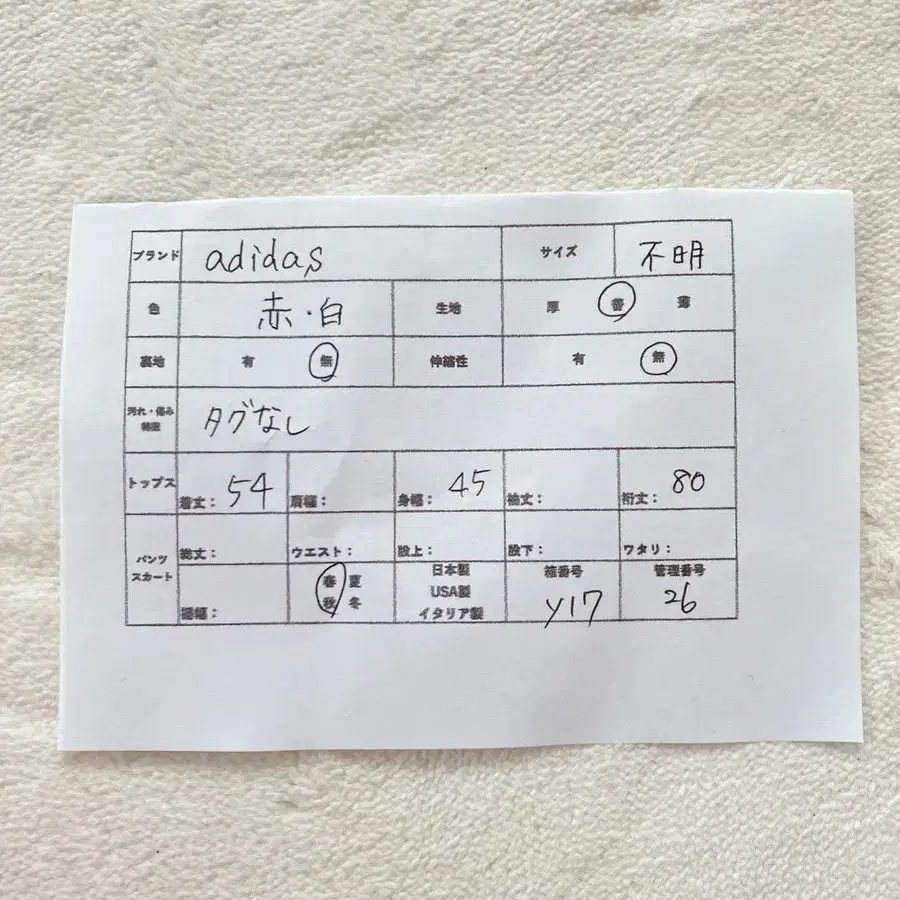 ブランド adidas サイズ 不明
色 赤・白 生地 厚 普 薄
裏地 有 無 伸縮性 有 無
汚れ・傷み
特徴
タグなし
トップス 着丈: 54 肩幅: 身幅: 45 袖丈: 裄丈: 80
パンツ
スカート
総丈: ウエスト: 股上: 股下: ワタリ:
裾幅: 春 夏
秋 冬
日本製
USA製
イタリア製
箱番号
Y17
管理番号
26